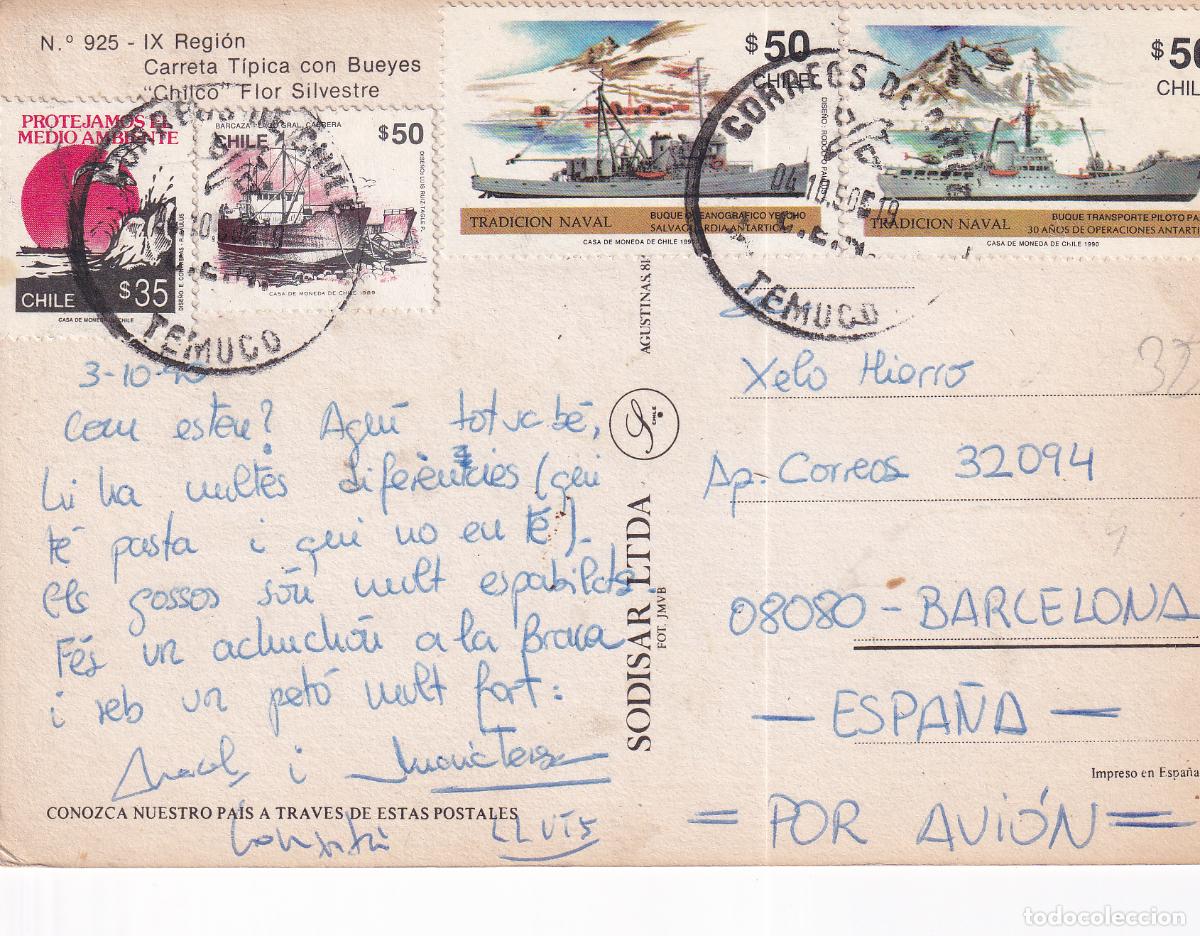 N.º 925 - IX Región
Carreta Típica con Bueyes
"Chilco" Flor Silvestre
PROTEJAMOS EL
MEDIO AMBIENTE
CHILE $35
CASA DE MONEDA DE CHILE
BARCAZA GRAL. CABRERA
CHILE $50
DISEÑO: LUIS RUIZ TAGLE P.
CASA DE MONEDA DE CHILE 1989
$50
CHILE
TRADICION NAVAL
BUQUE OCEANOGRAFICO YELCHO
SALVAGUARDIA ANTARTICA
CASA DE MONEDA DE CHILE 1990
$50
CHIL
TRADICION NAVAL
BUQUE TRANSPORTE PILOTO PA
30 AÑOS DE OPERACIONES ANTARTI
CASA DE MONEDA DE CHILE 1990
CORREOS DE CHILE
TEMUCO
CORREOS DE CHILE
TEMUCO
3-10-90
Com esteu? Aquí tot va bé,
hi ha moltes diferències (qui
té pasta i qui no en té).
Els gossos són molt espabilats.
Fés un achuchón a la Braca
i reb un petó molt fort:
i Maria Teresa
LLUÍS
CONOZCA NUESTRO PAIS A TRAVES DE ESTAS POSTALES
AGUSTINAS. 81
CHILE
SODISAR LTDA
FOT. JMVB
Xelo Hierro
Ap. Correos 32094
08080 - BARCELONA
— ESPAÑA —
Impreso en España
= POR AVIÓN =
todocoleccion